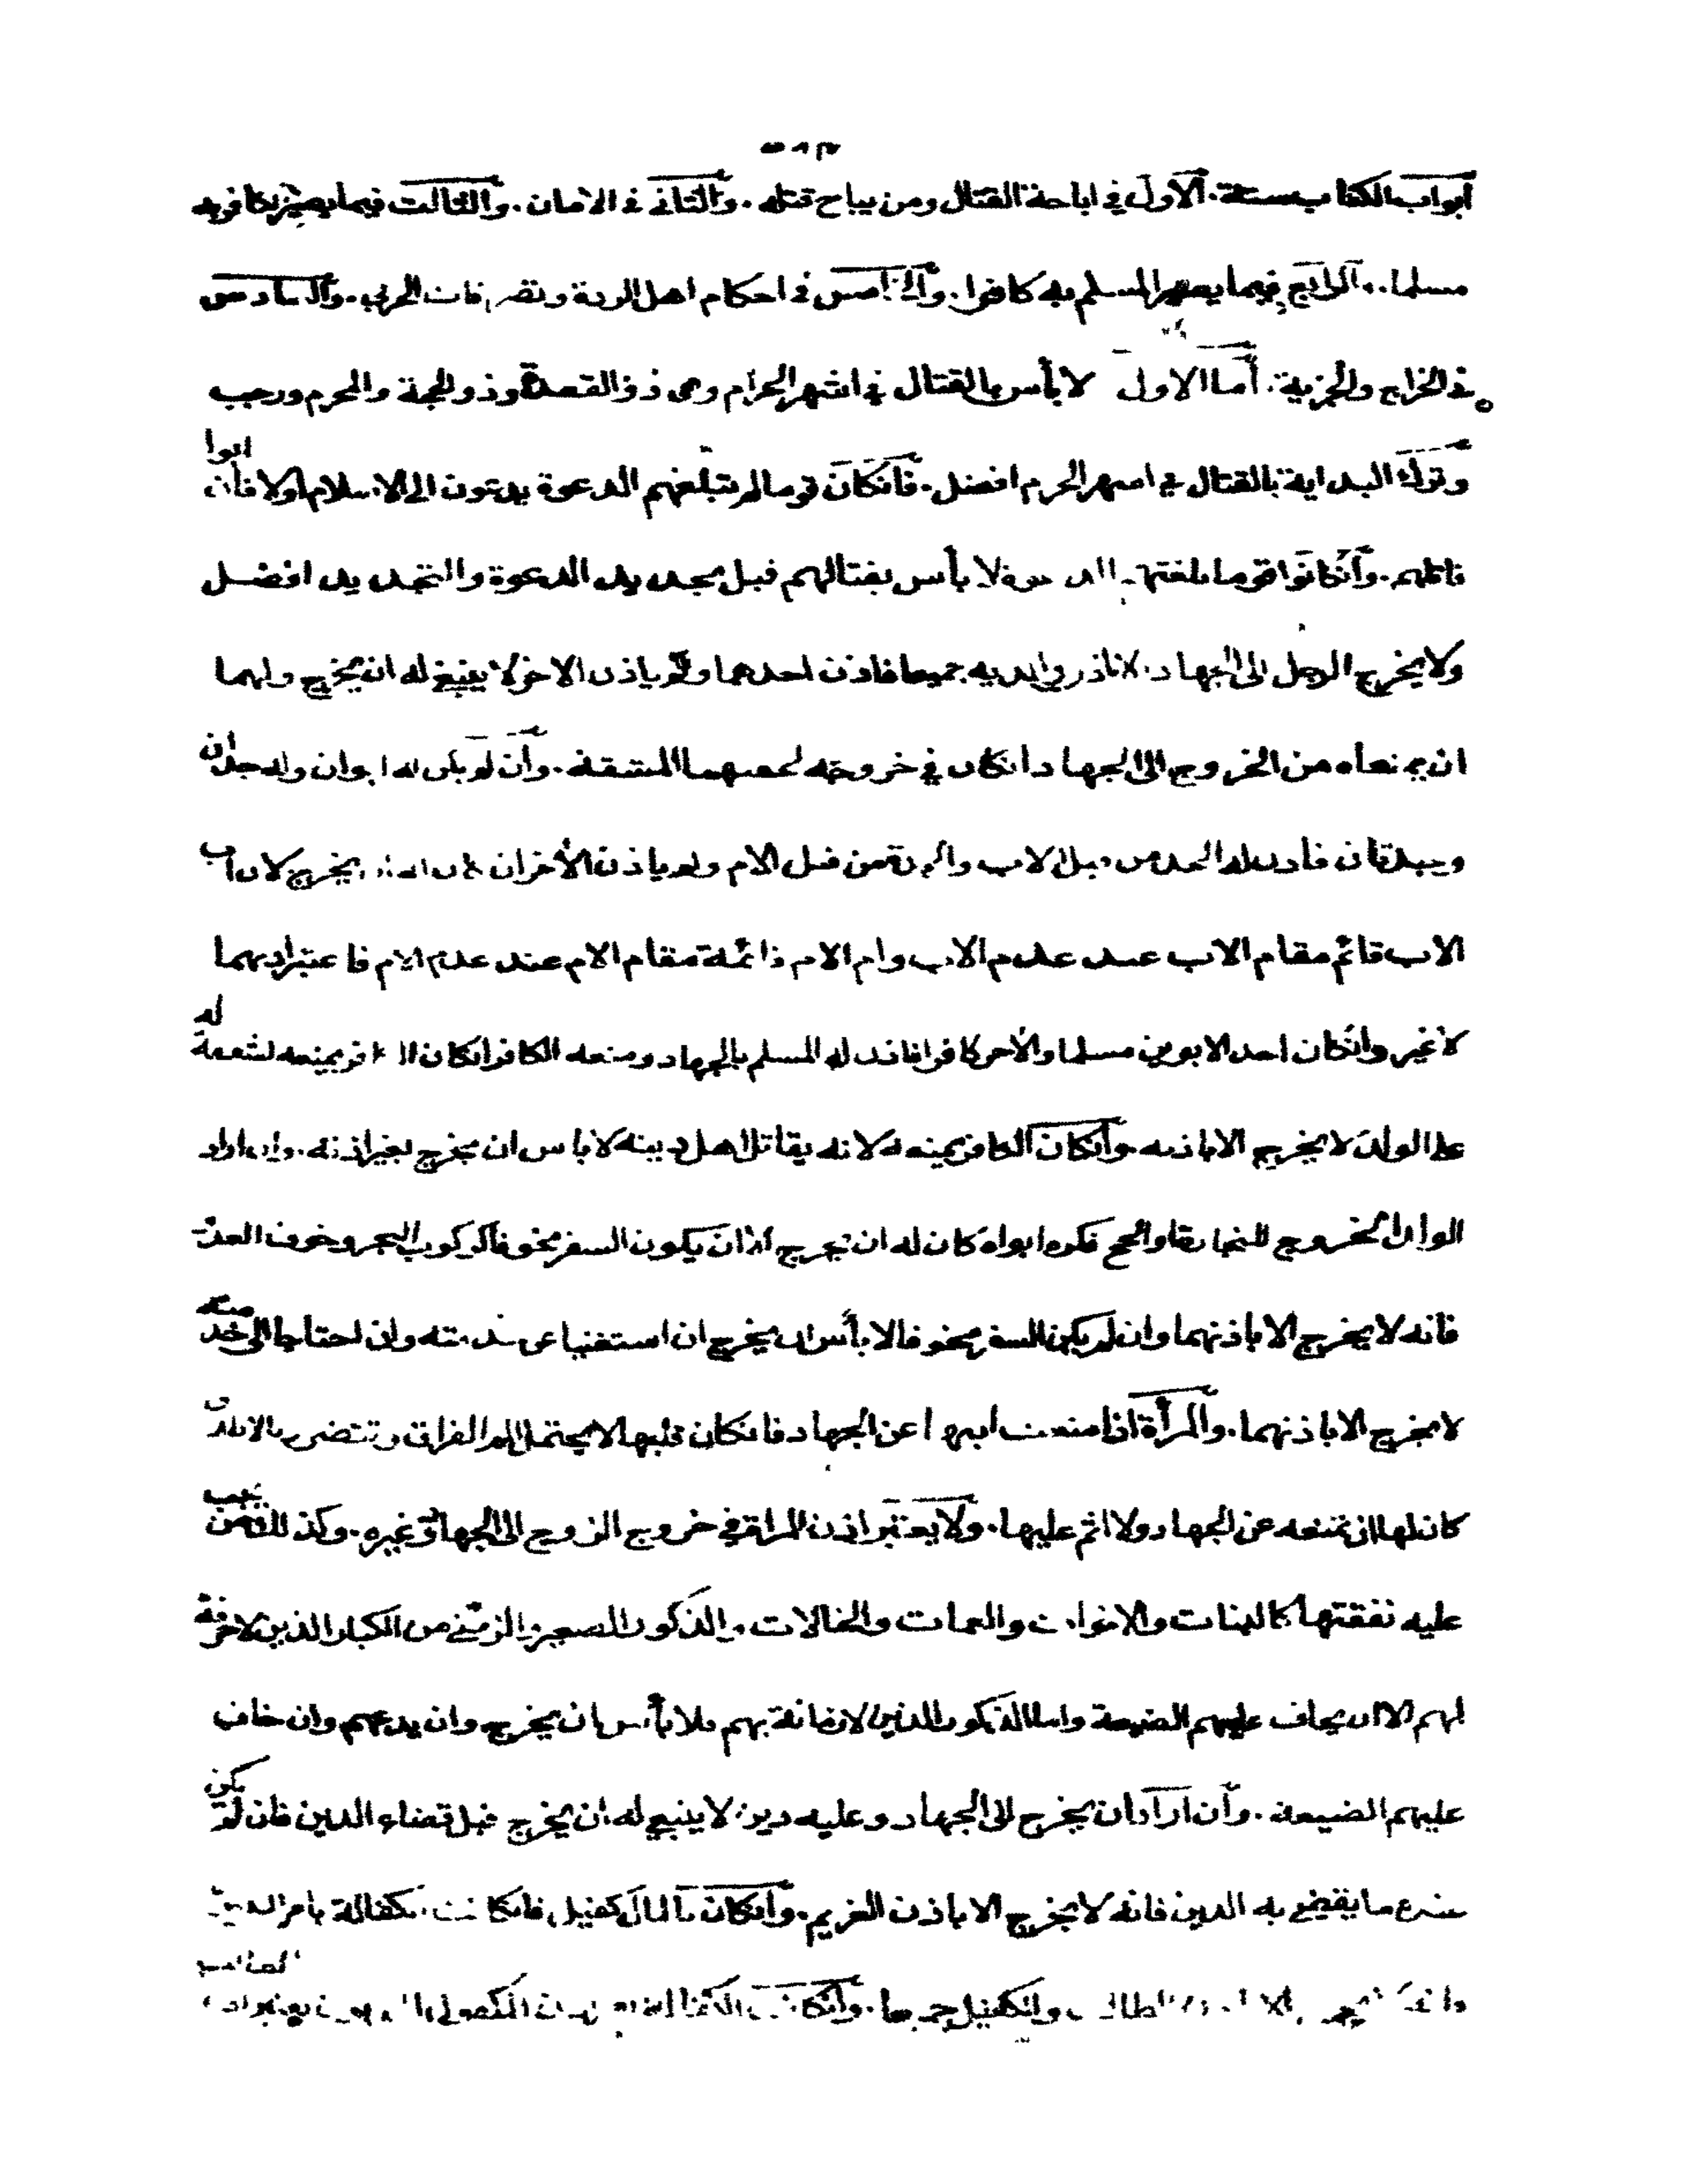 أبواب الكتاب ستة. الأول في اباحة القتال ومن يباح قتله. والثاني في الامان. والثالث فيما يصير الكافر به
مسلما. والرابع فيما يصير المسلم به كافرا. والخامس في احكام اهل الردة وتصرفات الحربي. والسادس
في الخراج والجزية. أما الاول لا بأس بالقتال في اشهر الحرام وهي ذو القعدة وذو الحجة والمحرم ورجب
وترك البداية بالقتال في اشهر الحرم افضل. فان كان قوما لم تبلغهم الدعوة يدعون الى الاسلام اولا فان ابوا
قاتلهم. وان كانوا قوما بلغتهم الدعوة لا بأس بقتالهم قبل تجديد الدعوة والتجديد افضل
ولا يخرج الرجل الى الجهاد الا باذن والديه جميعا فاذن احدهما ولم ياذن الاخر لا ينبغي له ان يخرج ولهما
ان يمنعاه من الخروج الى الجهاد ان كان في خروجه لحقهما المشقة. وان لم يكن له ابوان وله جدان
وجدتان فاذن له الجد من قبل الاب والجدة من قبل الام ولم ياذن الأخران لا بأس بان يخرج لان اب
الاب قائم مقام الاب عند عدم الاب وام الام قائمة مقام الام عند عدم الام فاعتبر اذنهما
لا غير وان كان احد الابوين مسلما والأخر كافرا فاذن له المسلم بالجهاد ومنعه الكافر ان كان الكافر يمنعه لشفقة له
على الولد لا يخرج الا باذنه وان كان الكافر يمنعه لانه يقاتل اهل دينه لا باس ان يخرج بغير اذنه. وان اراد
الولد الخروج للتجارة او الحج فكره ابواه كان له ان يخرج الا ان يكون السفر مخوفا كركوب البحر وخوف العدو
فانه لا يخرج الا باذنهما وان لم يكن السفر مخوفا لا بأس ان يخرج ان استغنيا عن خدمته وان احتاجا الى خدمته
لا يخرج الا باذنهما. والمرأة اذا منعت ابنها عن الجهاد فان كان قلبها لا يحتمل الم الفراق وتتضرر بالاذن
كان لها ان تمنعه عن الجهاد ولا اثم عليها. ولا يعتبر اذن المراة في خروج الزوج الى الجهاد وغيره. وكذلك من يجب
عليه نفقتها كالبنات والاخوات والعمات والخالات والذكور الصغير والزمنى من الكبار الذين لا حرفة
لهم الا ان يخاف عليهم الضيعة واما الذكور الذين لا زمانة بهم فلا بأس بان يخرج وان يدعهم وان خاف
عليهم الضيعة. وان اراد ان يخرج الى الجهاد وعليه دين لا ينبغي له ان يخرج قبل قضاء الدين فان لم يكن
عنده ما يقضي به الدين فانه لا يخرج الا باذن الغريم. وان كان بالمال كفيل فان كانت الكفالة بامر المديون
الطالب والكفيل جميعا. وان كانت الكفالة بغير